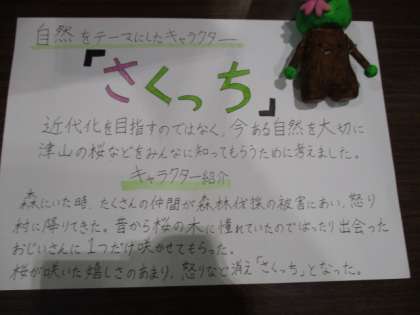 自然をテーマにしたキャラクター
「さくっち」
近代化を目指すのではなく、今ある自然を大切に
津山の桜などをみんなに知ってもらうために考えました。
キャラクター紹介
森にいた時、たくさんの仲間が森林伐採の被害にあい、怒り
村に降りてきた。昔から桜の木に憧れていたのでばったり出会った
おじいさんに1つだけ咲かせてもらった。
桜が咲いた嬉しさのあまり、怒りなど消え「さくっち」となった。